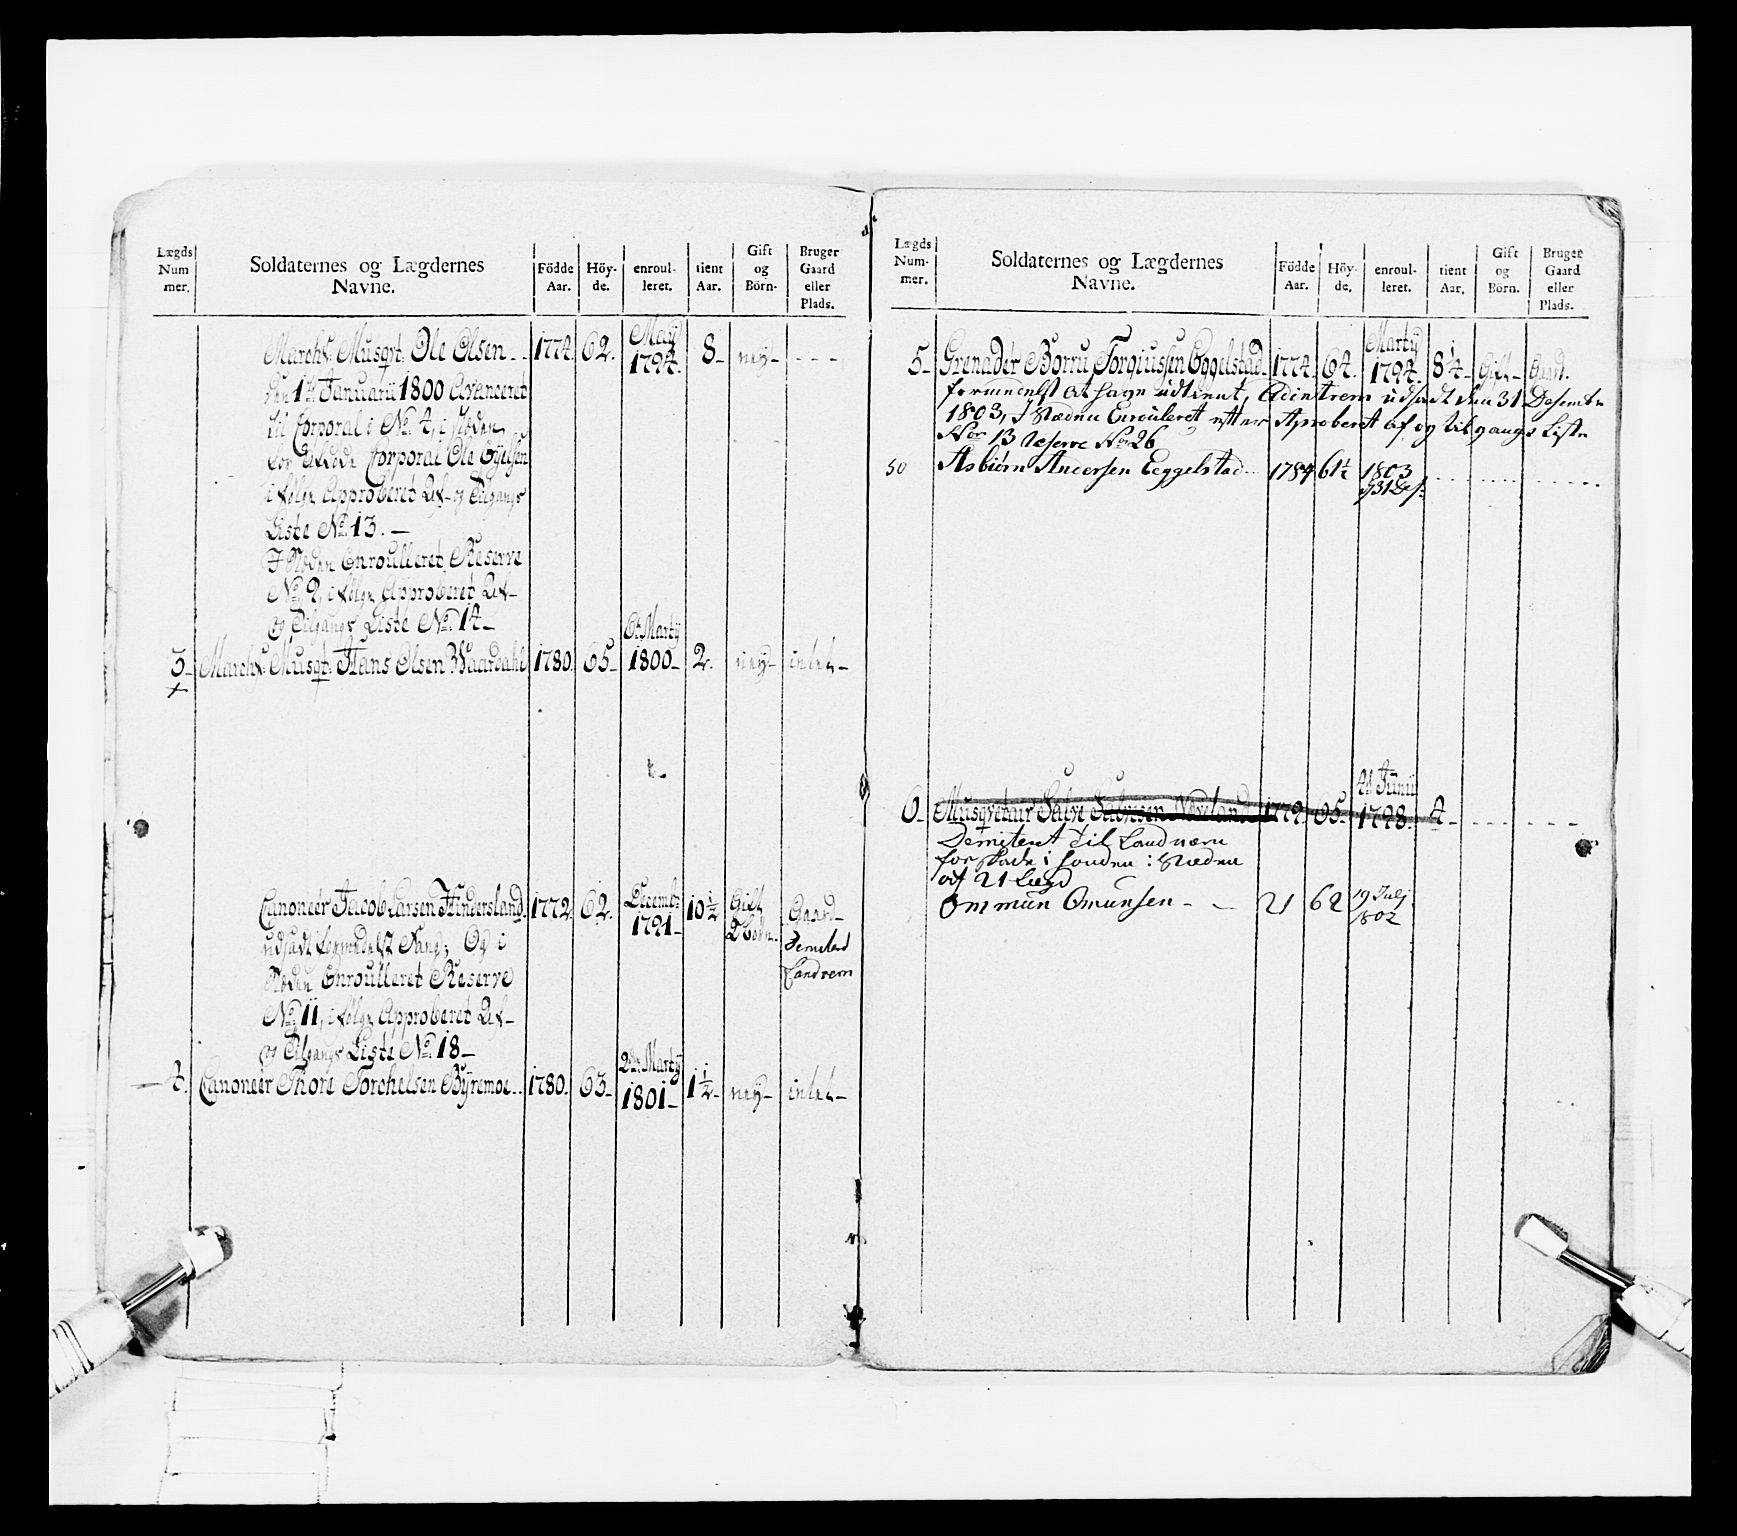 Lægds Num mer. Soldaternes og Lægdernes Navne. Födde Aar. Höy- de. enroul- leret. tient Aar. Gift og Börn. Bruger Gaard eller Plads.
Marchs. Musqt. Ole Olsen 1774. 62. May 1794. 8 ney
den 1te Januarii 1800 Avanceret
til Corporal i No. 4, i Steden
for Corporal Ole
i følge Approberet Af- og Tilgangs
Liste No. 13.
I Steden Enroulleret Reserve
No. 2, i følge Approberet Af-
og Tilgangs Liste No. 14
3 Marchs. Musqt. Hans Olsen Waardahl 1780. 65 6te Martÿ 1800 2. ney intet
Canoneer Jacob Larsen Hindersland 1772. 62. Decembr 1791 10 1/2 Gift 2 Börn Gaard
Landvern
udsadt formedelst Og i
Steden Enroulleret Reserve
No. 11, i følge Approberet Af-
og Tilgangs Liste No. 18
4. Canoneer Thore Torchelsen Byremoe 1780. 63 2den Martÿ 1801 1 1/2 ney intet
Lægds Num- mer. Soldaternes og Lægdernes Navne. Födde Aar. Höy- de. enroul- leret. tient Aar. Gift og Börn. Bruger Gaard eller Plads.
5 Grenadér Borru Torgiussen Eggelstad 1774. 64. Martÿ 1794 8 1/4 Gift Gaard.
formedelst at have udtient, udsadt den 31 Desembr
1803, I Stæden Enrouleret etter Aproberet af og tilgangs Liste
Nor 13 Reserve Nor 26
50 Asbiörn Andersen Eeggelstad 1784 61 1/2 1803 31 Des:
6 Musqvetair Salve Salvesen 1772. 65 4de Junii 1798. 4
Demitert til Landværn
for Skade i Steden
af 21 Lægd
Ommun Omunsen 21 62 19 Julj 1802